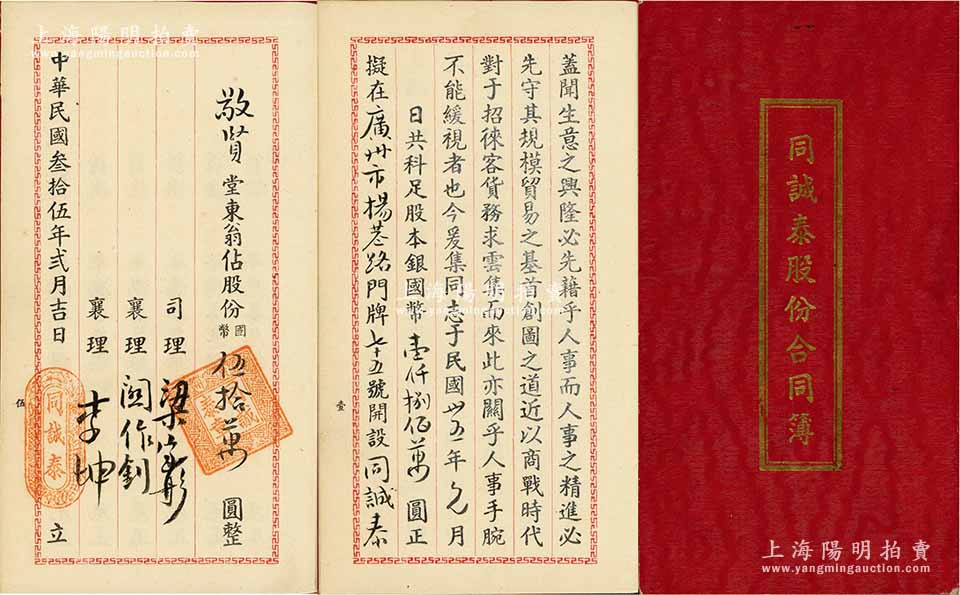 同誠泰股份合同簿
蓋聞生意之興隆必先藉乎人事而人事之精進必
先守其規模貿易之基首創圖之道近以商戰時代
對于招徠客貨務求雲集而來此亦關乎人事手腕
不能緩視者也今爰集同志于民國卅五年元月
日共科足股本銀國幣壹仟捌佰萬圓正
擬在廣州市楊巷路門牌七十五號開設同誠泰
壹
敬賢堂東翁佔股份國幣伍拾萬圓整
司理 梁
襄理 關作釗
襄理 李坤
中華民國叁拾伍年弍月吉日 立
同誠泰
伍
上海陽明拍賣
www.yangmingauction.com
上海陽明拍賣
www.yangmingauction.com
上海陽明拍賣
www.yangmingauction.com